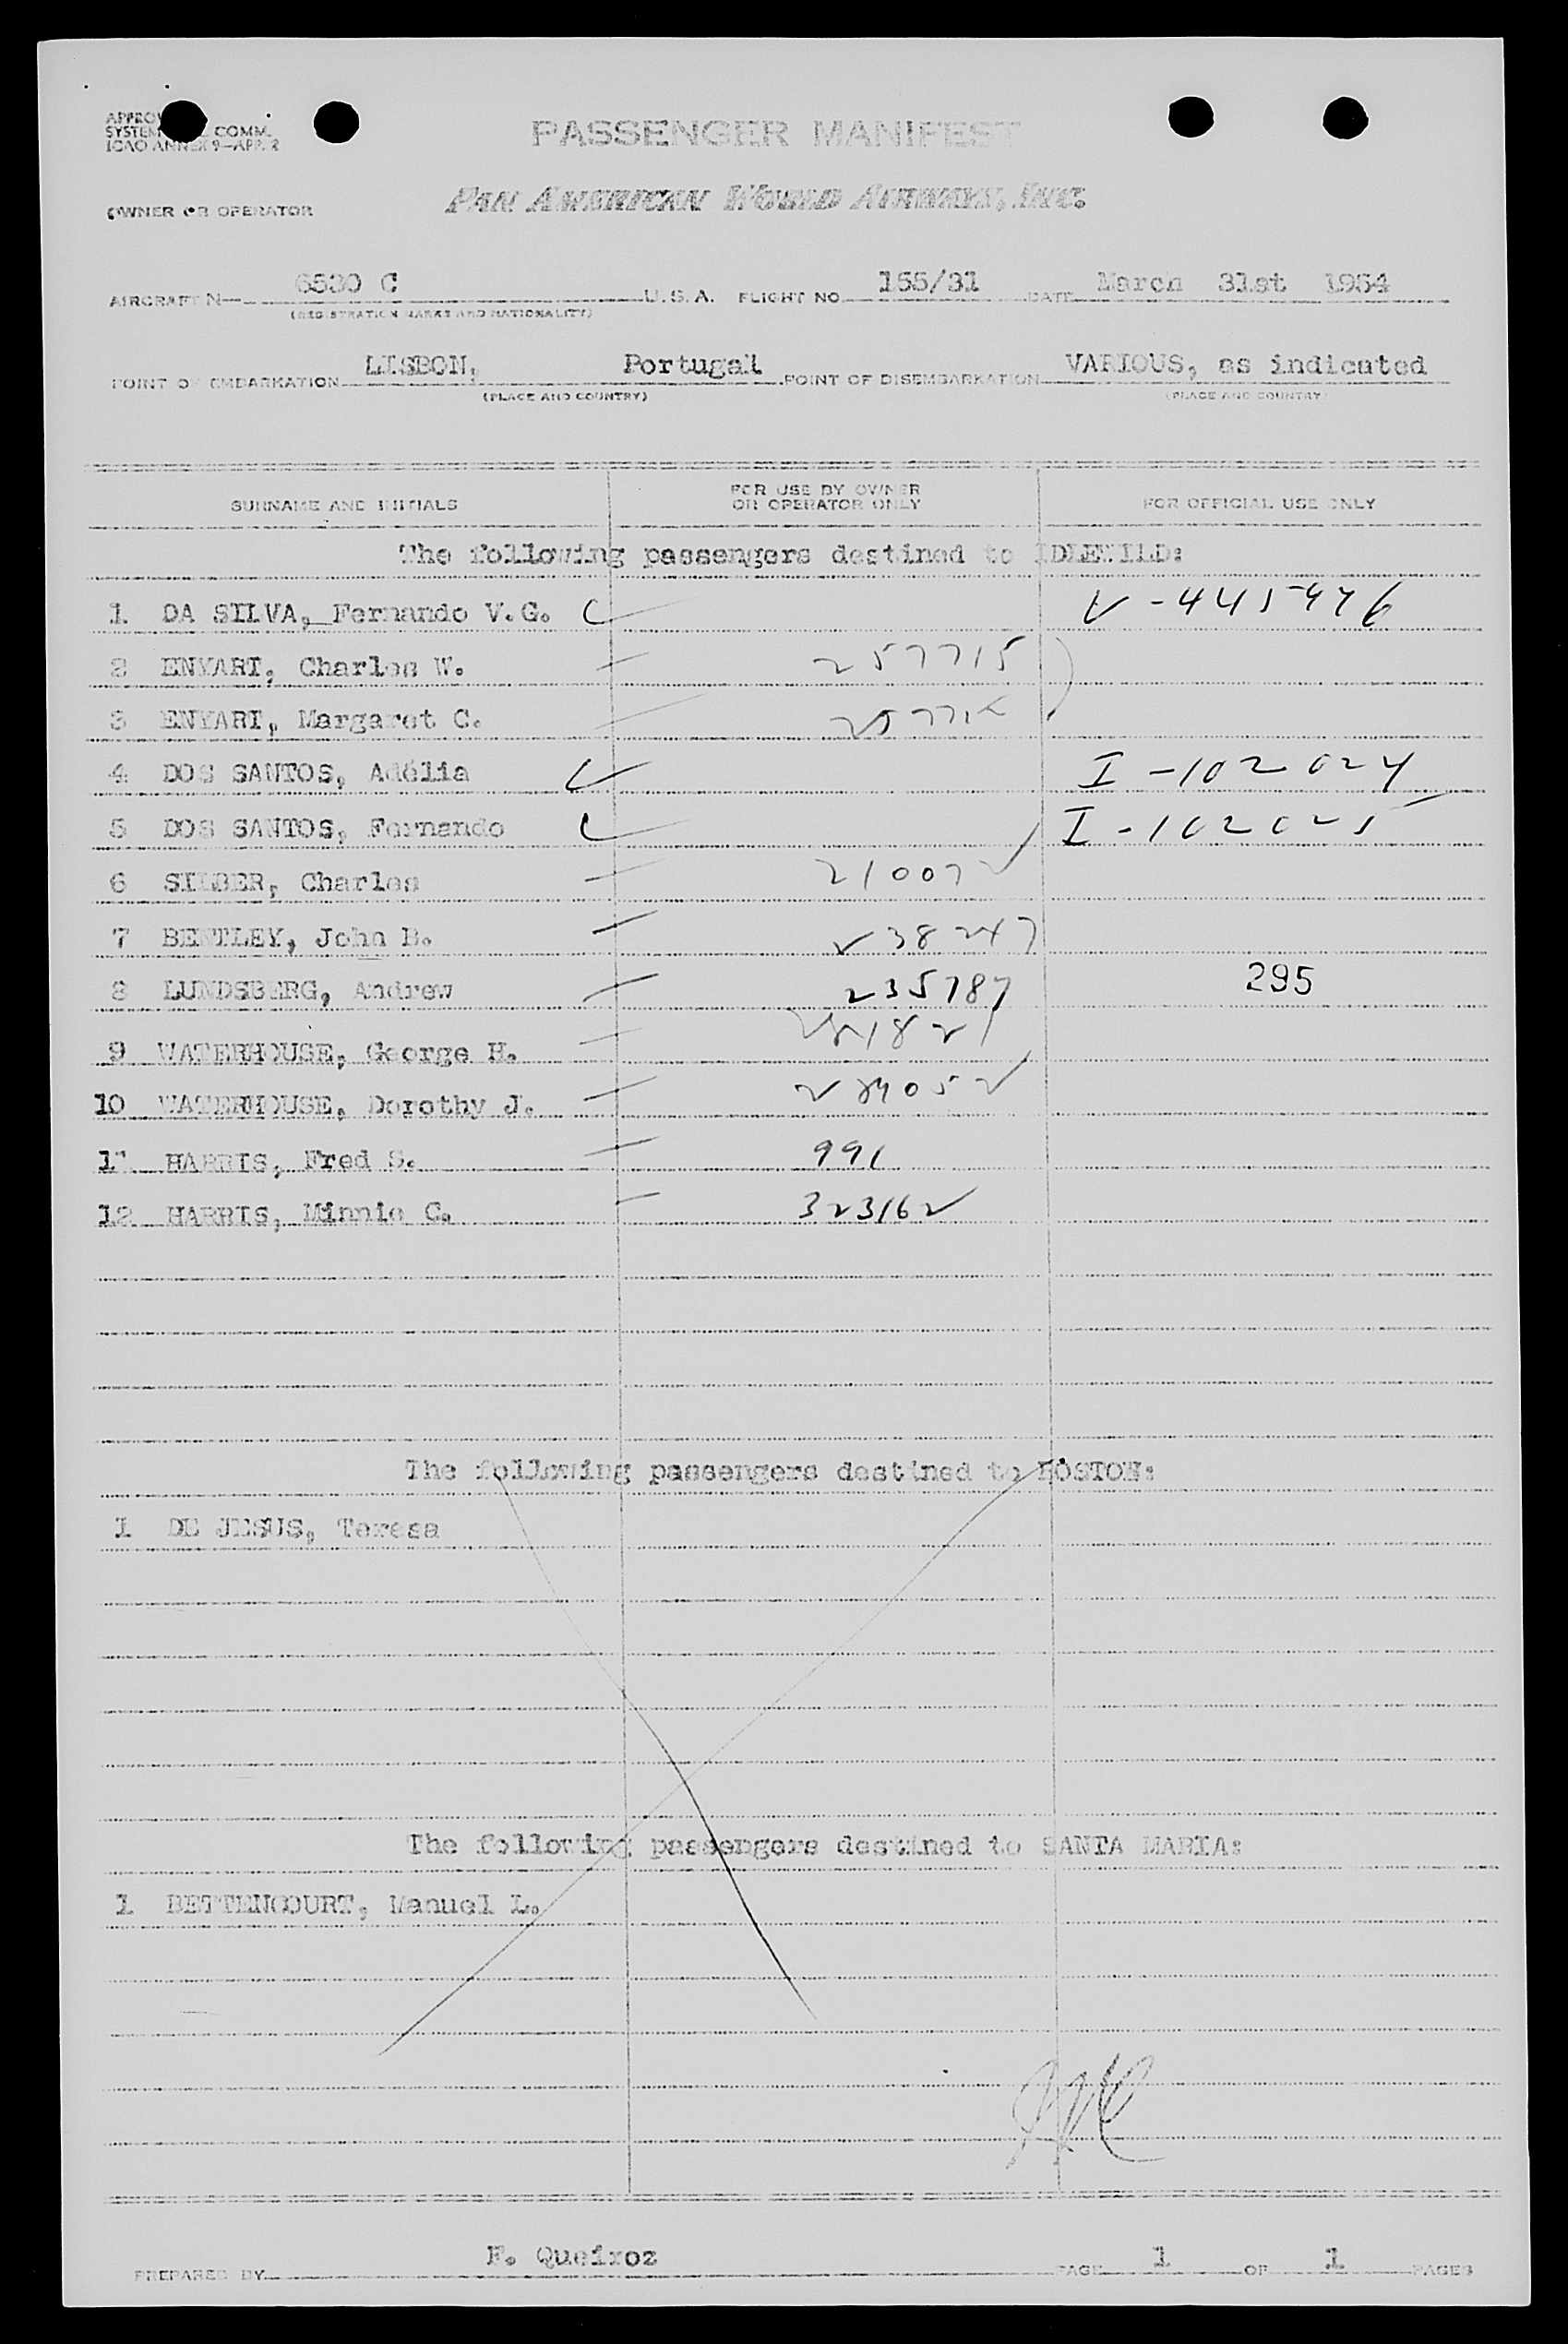 PASSENGER MANIFEST
COMM.
ICAO ANNEX 9—APP. 2
OWNER OR OPERATOR PAN AMERICAN WORLD AIRWAYS, INC.
AIRCRAFT N— 6530 C U.S.A. FLIGHT NO. 155/31 DATE March 31st 1954
(REGISTRATION MARKS AND NATIONALITY)
POINT OF EMBARKATION LISBON, Portugal POINT OF DISEMBARKATION VARIOUS, as indicated
(PLACE AND COUNTRY) (PLACE AND COUNTRY)
SURNAME AND INITIALS FOR USE BY OWNER OR OPERATOR ONLY FOR OFFICIAL USE ONLY
The following passengers destined to IDLEWILD:
1 DA SILVA, Fernando V.G. V-445976
2 ENYART, Charles W. 257715
3 ENYART, Margaret C.
4 DOS SANTOS, Adélia I-102024
5 DOS SANTOS, Fernando I-102025
6 SILBER, Charles 21007
7 BENTLEY, John B. 238247
8 LUNDSBERG, Andrew 235787 295
9 WATERHOUSE, George H.
10 WATERHOUSE, Dorothy J.
11 HARRIS, Fred S. 991
12 HARRIS, Minnie C. 323162
The following passengers destined to BOSTON:
1 DE JESUS, Teresa
The following passengers destined to SANTA MARIA:
1 BETTENCOURT, Manuel L.
PREPARED BY F. Queiroz PAGE 1 OF 1 PAGES